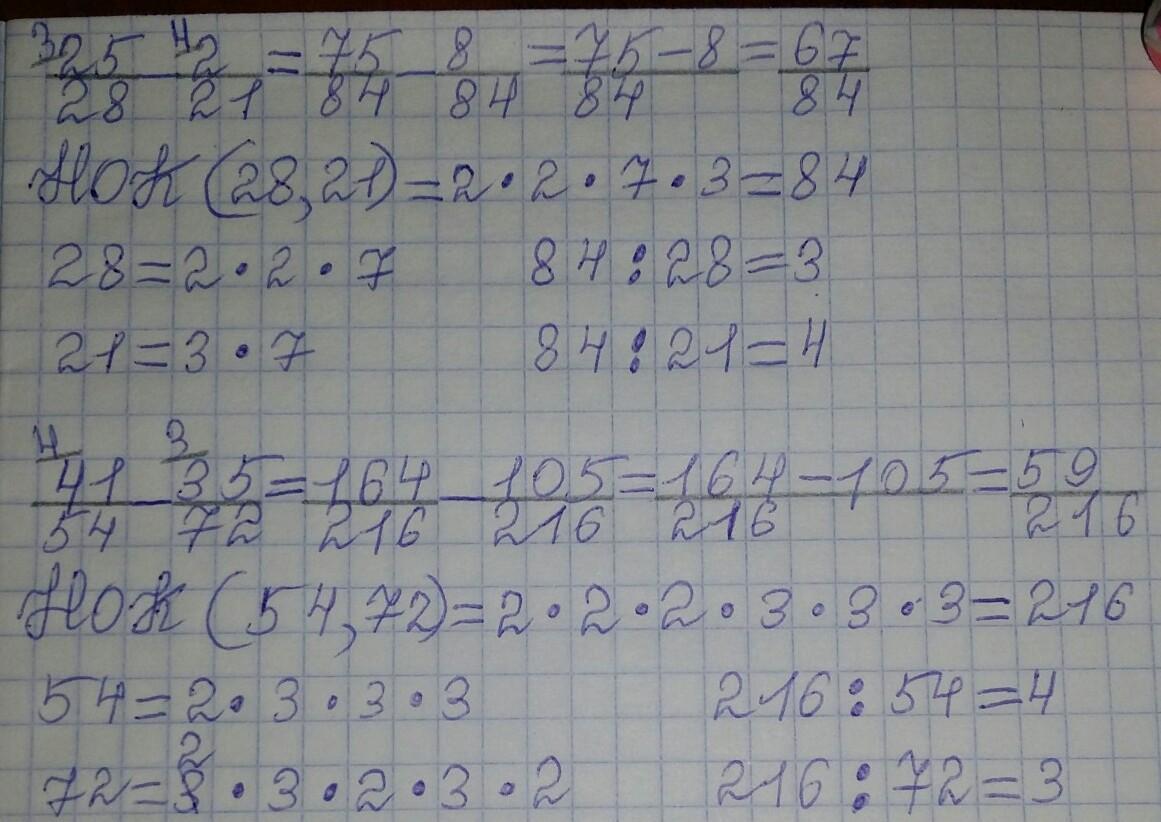 3 25/28 - 4 2/21 = 75/84 - 8/84 = 75-8/84 = 67/84
НОК (28,21)=2·2·7·3=84
28=2·2·7 84:28=3
21=3·7 84:21=4
4 41/54 - 3 35/72 = 164/216 - 105/216 = 164-105/216 = 59/216
НОК (54,72)=2·2·2·3·3·3=216
54=2·3·3·3 216:54=4
72=2·3·2·3·2 216:72=3